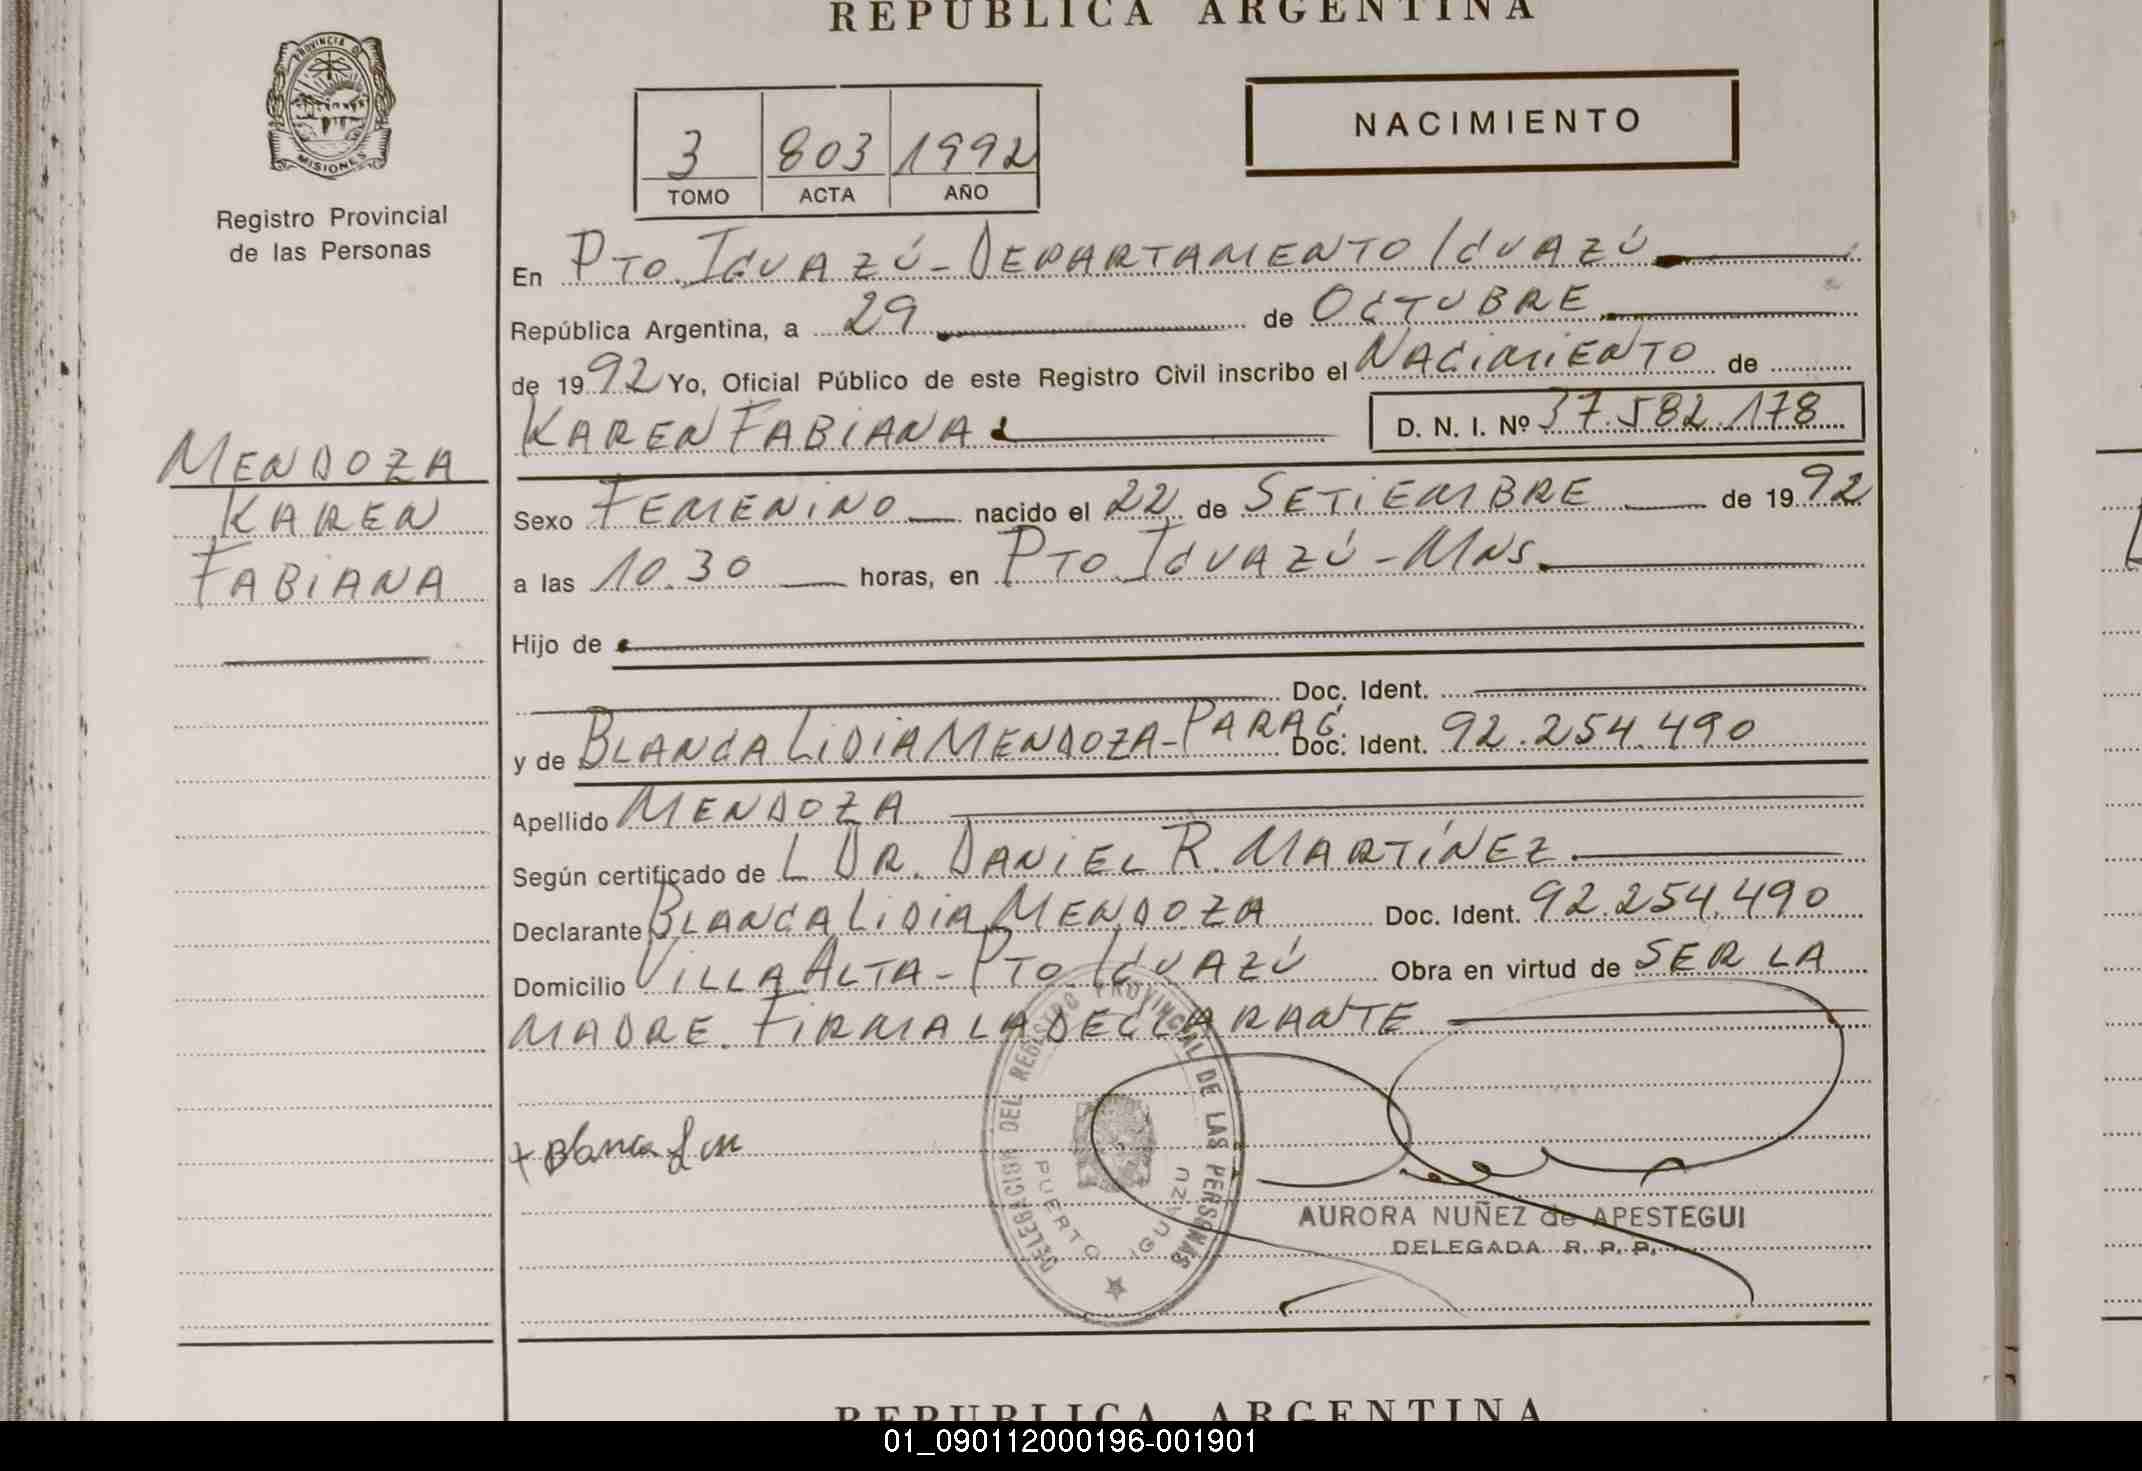 REPUBLICA ARGENTINA
PROVINCIA DE
MISIONES
Registro Provincial
de las Personas
3 803 1992
TOMO ACTA AÑO
NACIMIENTO
En PTO. IGUAZÚ - DEPARTAMENTO IGUAZÚ
República Argentina, a 29 de OCTUBRE
de 1992 Yo, Oficial Público de este Registro Civil inscribo el NACIMIENTO de
KAREN FABIANA D. N. I. Nº 37.582.178
MENDOZA
KAREN
FABIANA
Sexo FEMENINO nacido el 22 de SETIEMBRE de 1992
a las 10.30 horas, en PTO IGUAZÚ - MNS.
Hijo de
Doc. Ident.
y de BLANCA LIDIA MENDOZA - PARAG. Doc. Ident. 92.254.490
Apellido MENDOZA
Según certificado de L DR. DANIEL R. MARTÍNEZ
Declarante BLANCA LIDIA MENDOZA Doc. Ident. 92.254.490
Domicilio VILLA ALTA - PTO. IGUAZÚ Obra en virtud de SER LA
MADRE. FIRMA LA DECLARANTE
DELEGACION DEL REGISTRO PROVINCIAL DE LAS PERSONAS
PUERTO IGUAZU
+ Blanca L M
AURORA NUÑEZ de APESTEGUI
DELEGADA R. P. P.
REPUBLICA ARGENTINA
01_090112000196-001901